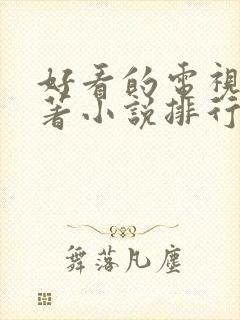 好看的電視
著小說排行
舞落凡塵